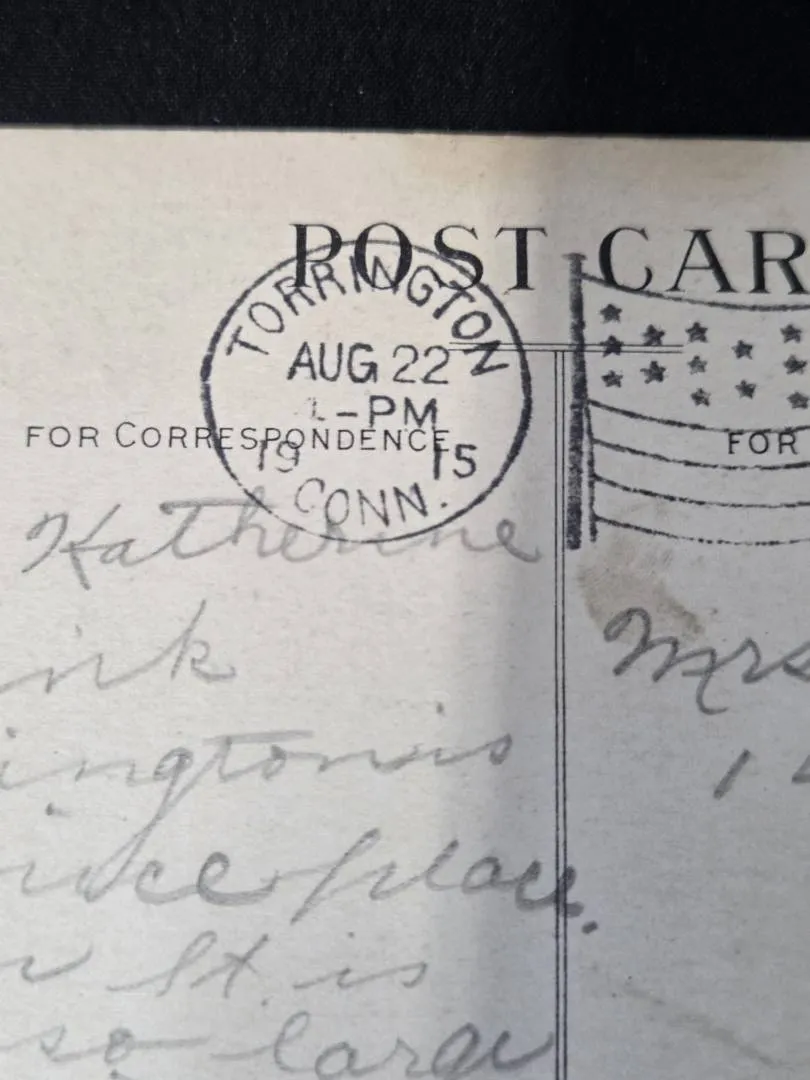 POST CAR
TORRINGTON
AUG 22
1-PM
19 15
CONN.
FOR CORRESPONDENCE
FOR
Katherine
ink
ingtonis
nice place.
St. is
so large
Mrs
1